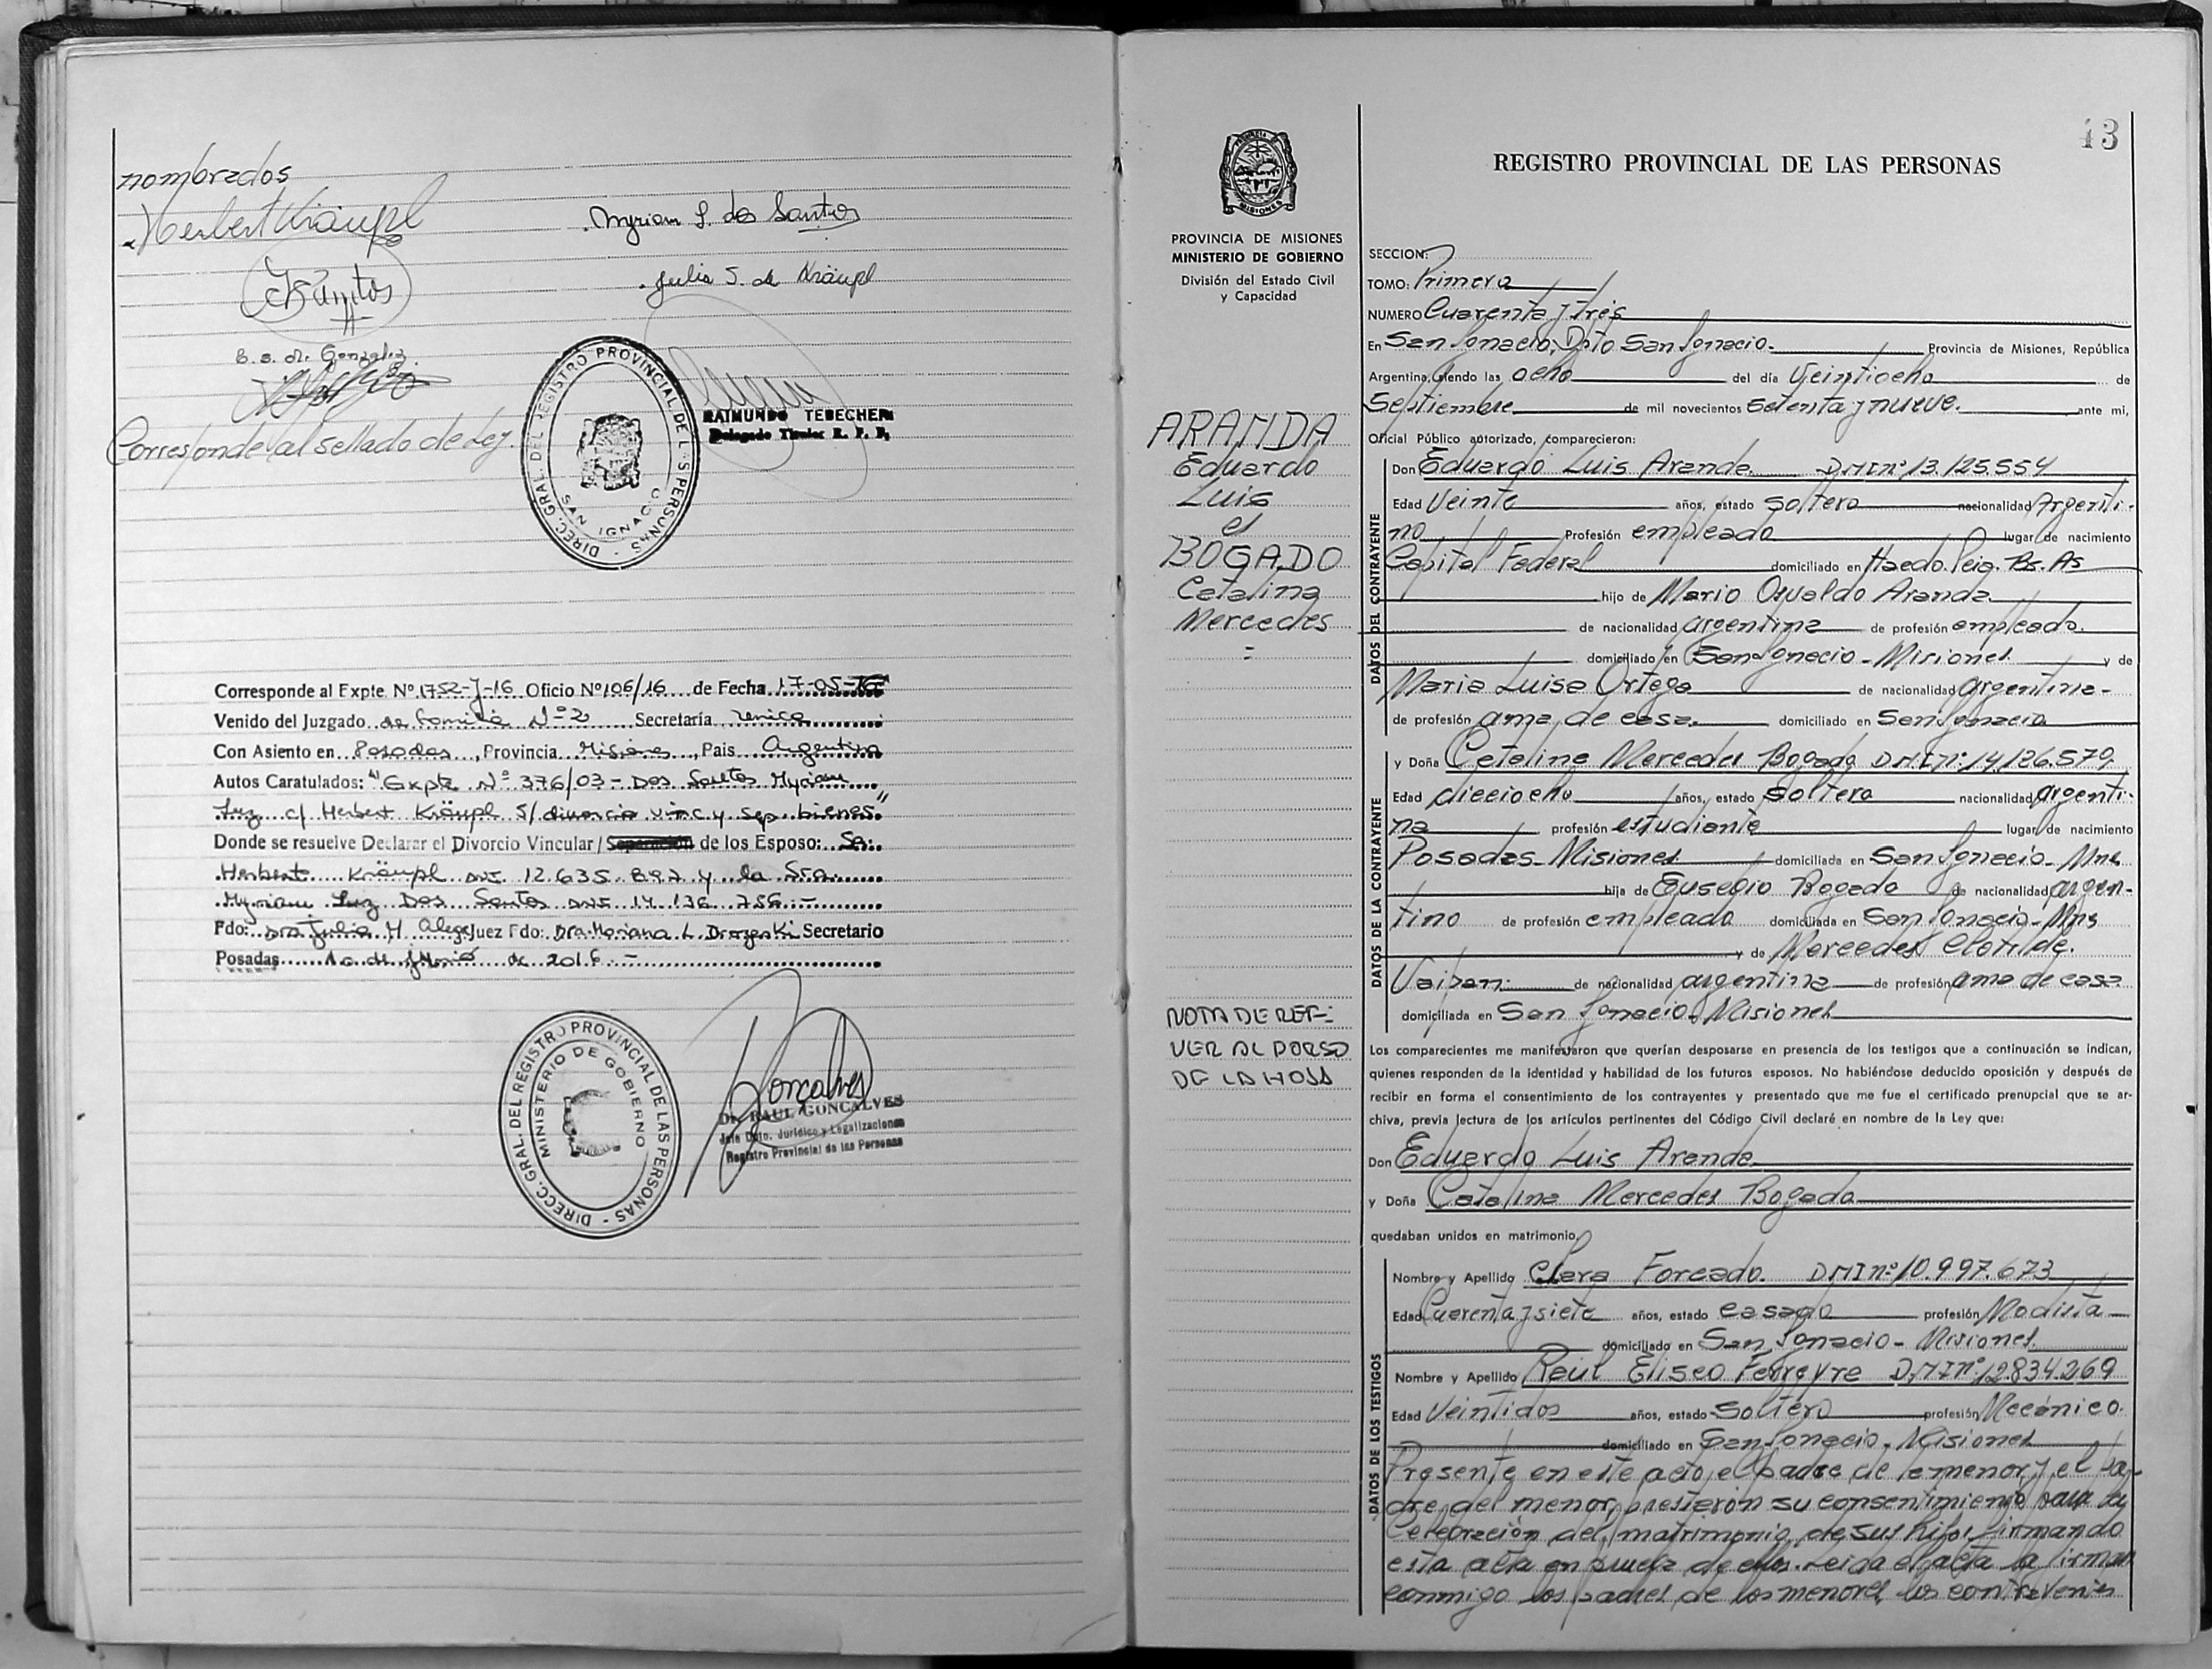 nombrados
Herbert Kräupl
Myriam L. dos Santos
Julia S. de Kräupl
B. S. de Gonzalez
Corresponde al sellado de Ley.
DIREC. GRAL. DEL REGISTRO PROVINCIAL DE L S PERSONAS -
SAN IGNACIO
RAIMUNDO TEBECHERI
Delegado Titular R. P. P.
Corresponde al Expte. Nº 1752-J-16 Oficio Nº 106/16 de Fecha 17-05-16
Venido del Juzgado de Familia Nº 2 Secretaría unica
Con Asiento en Posadas, Provincia Misiones, Pais Argentina
Autos Caratulados: "Expte Nº 376/03 - Dos Santos Myriam
Luz c/ Herbert Kräupl S/ divorcio vinc y sep. bienes"
Donde se resuelve Declarar el Divorcio Vincular / Separación de los Esposo: Sr.
Herbert Kräupl DNI 12.635.897 y la Sra.
Myriam Luz Dos Santos DNI 14 136 756 -
Fdo: Dra Julia M Juez Fdo: Dra. Mariana L. Secretario
Posadas 10 de de 2016 -
DIRECC. GRAL. DEL REGISTRO PROVINCIAL DE LAS PERSONAS -
MINISTERIO DE GOBIERNO
Goncalves
Dr. RAUL GONCALVES
Jefe Dpto. Jurídico y Legalizaciones
Registro Provincial de las Personas
43
PROVINCIA DE MISIONES
MINISTERIO DE GOBIERNO
División del Estado Civil
y Capacidad
ARANDA
Eduardo
Luis
BOGADO
Catalina
Mercedes
=
NOTA DE REF-:
VER AL DORSO
DE LA HOJA
REGISTRO PROVINCIAL DE LAS PERSONAS
SECCION:
TOMO: Primero
NUMERO Cuarenta y tres
En San Ignacio, Dpto San Ignacio. Provincia de Misiones, República
Argentina, siendo las ocho del día Veintiocho de
Septiembre de mil novecientos setenta y nueve. ante mi,
Oficial Público autorizado, comparecieron:
DATOS DEL CONTRAYENTE
Don Eduardo Luis Aranda DMI nº 13.125.554
Edad Veinte años, estado soltero nacionalidad Argenti-
no Profesión empleado lugar de nacimiento
Capital Federal domiciliado en Haedo. Pcia. Bs. As
hijo de Mario Osvaldo Aranda
de nacionalidad argentina de profesión empleado.
domiciliado en San Ignacio - Misiones y de
Maria Luisa Ortega de nacionalidad argentina-
de profesión ama de casa. domiciliado en San Ignacio
DATOS DE LA CONTRAYENTE
y Doña Catalina Mercedes Bogado DMI nº 14.126.579
Edad dieciocho años, estado soltera nacionalidad argenti-
na profesión estudiante lugar de nacimiento
Posadas - Misiones domiciliada en San Ignacio - Mnes
hija de Eusegio Bogado de nacionalidad argen-
tino de profesión empleado domiciliada en San Ignacio - Mnes
y de Mercedes Clotilde
de nacionalidad argentina de profesión ama de casa
domiciliada en San Ignacio - Misiones
Los comparecientes me manifestaron que querían desposarse en presencia de los testigos que a continuación se indican,
quienes responden de la identidad y habilidad de los futuros esposos. No habiéndose deducido oposición y después de
recibir en forma el consentimiento de los contrayentes y presentado que me fue el certificado prenupcial que se ar-
chiva, previa lectura de los artículos pertinentes del Código Civil declaré en nombre de la Ley que:
Don Eduardo Luis Aranda
y Doña Catalina Mercedes Bogado
quedaban unidos en matrimonio.
DATOS DE LOS TESTIGOS
Nombre y Apellido Clara Forcado. DMI nº 10.997.673
Edad Cuarenta y siete años, estado casada profesión Modista
domiciliado en San Ignacio - Misiones.
Nombre y Apellido Raúl Eliseo Ferreyra DMI nº 12.834.269
Edad Veintidos años, estado soltero profesión Mecánico.
domiciliado en San Ignacio. Misiones
Presente en este acto, el padre de la menor y el pa-
dre del menor, prestaron su consentimiento para la
celebración del matrimonio de sus hijos firmando
esta acta en prueba de ellos. Leida el acta la firman
conmigo los padres de los menores, los contrayentes